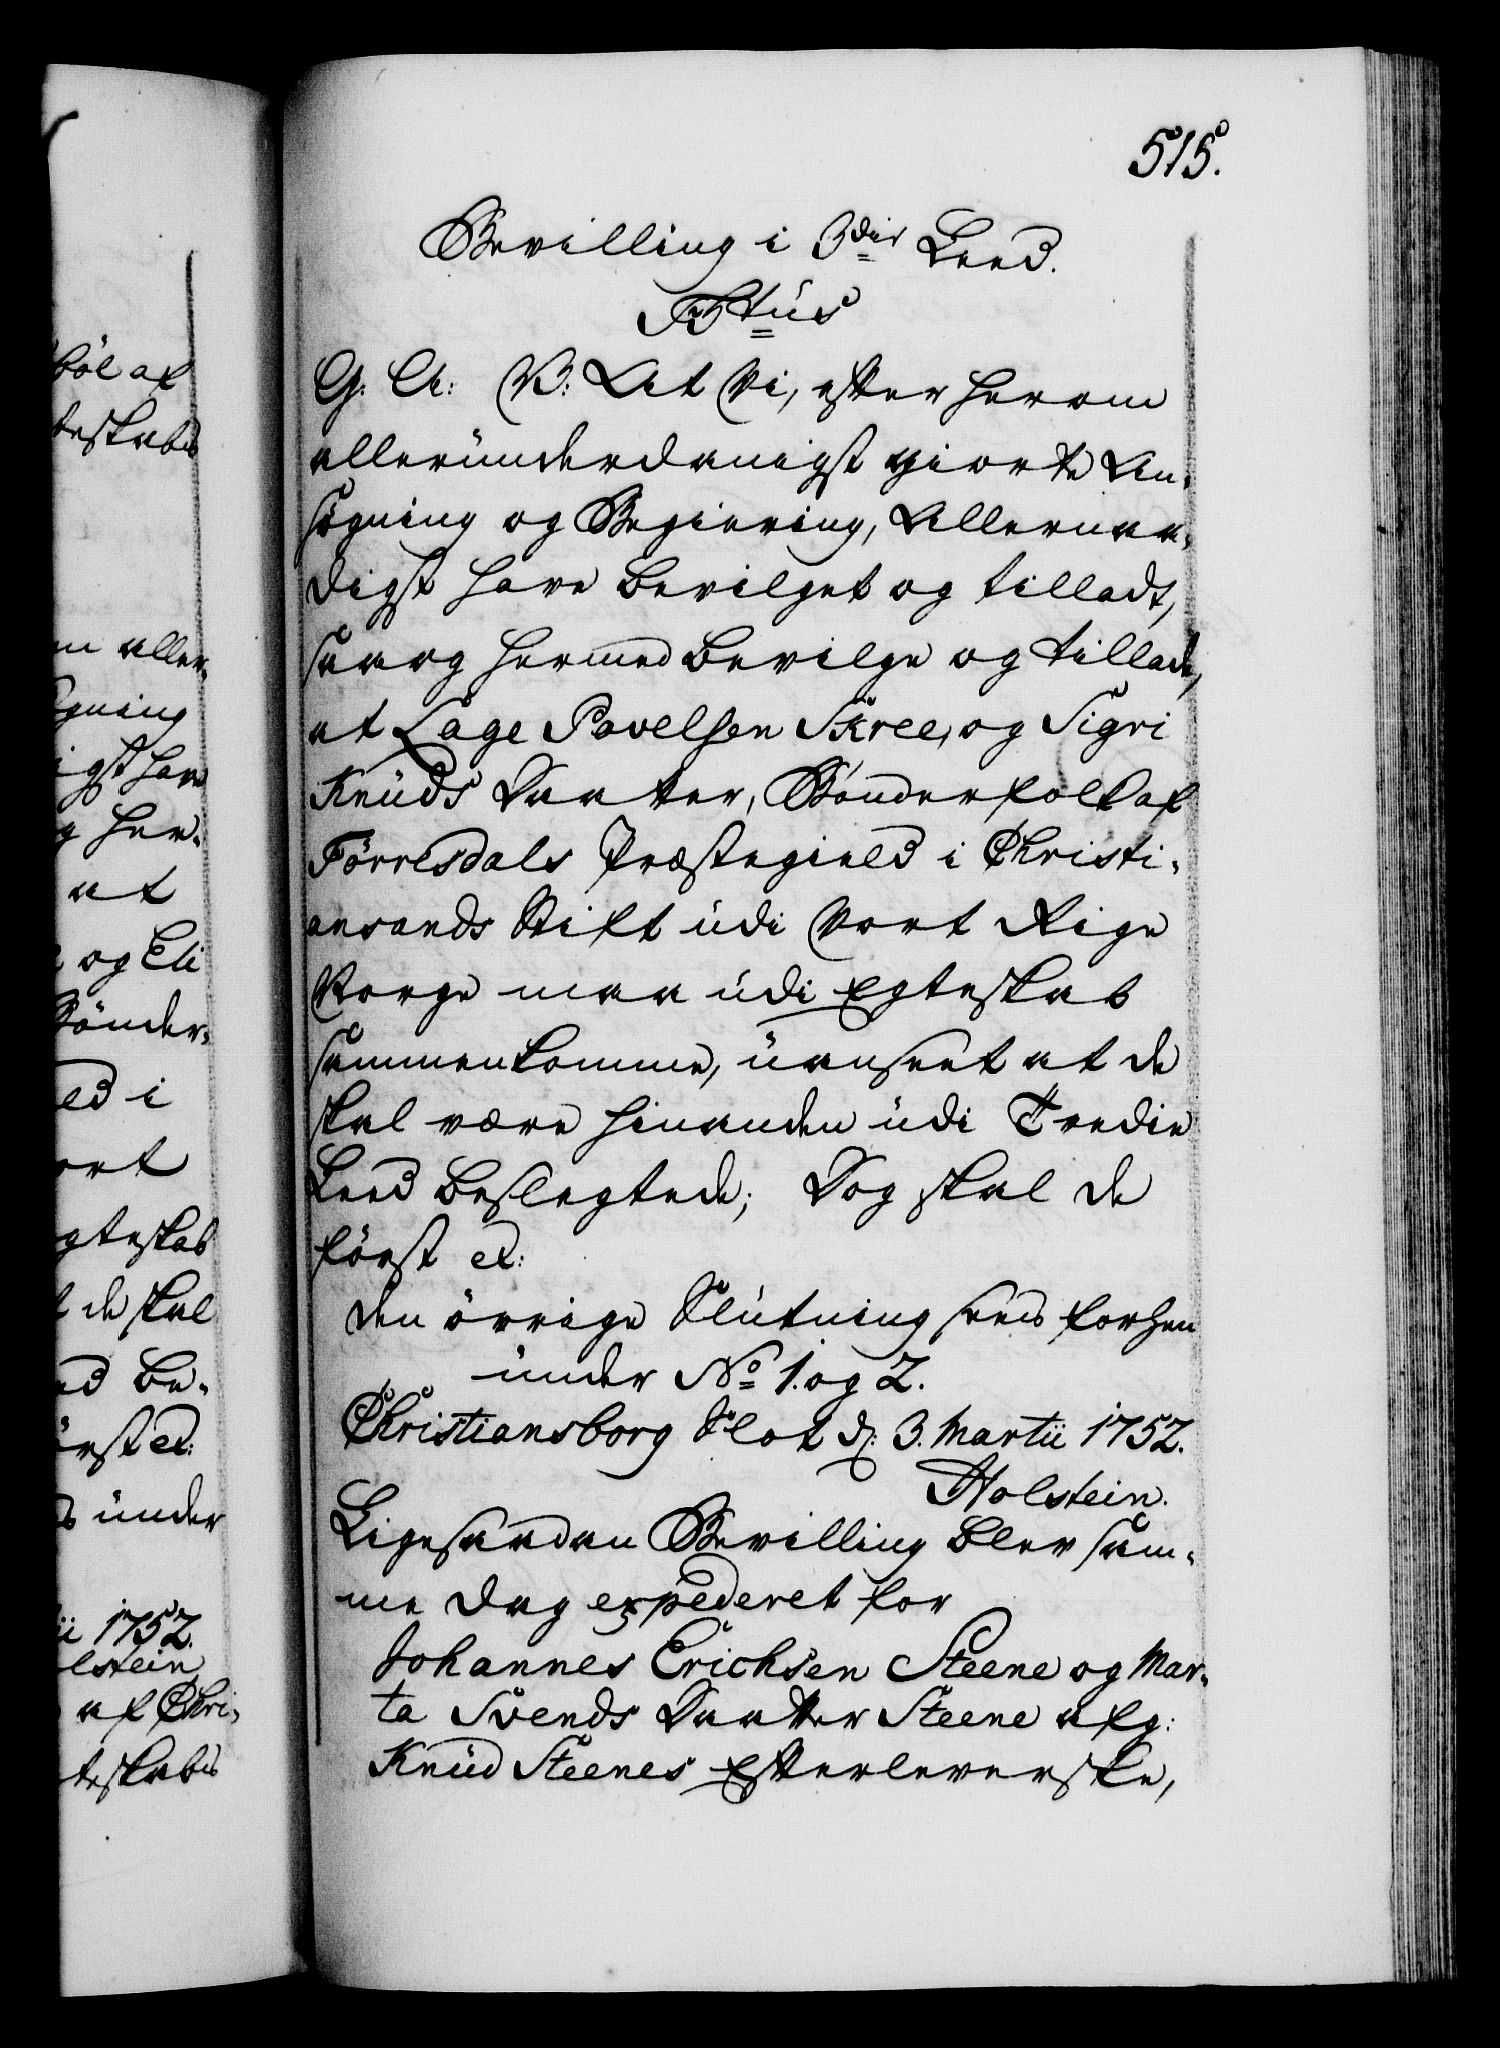 515.
Bevilling i 3die Leed.
F5tus
G: A: V: At Vi, efter herom
allerunderdanigst giorte An-
søgning og Begiering, Allernaa-
digst have bevilget og tilladt,
saa og hermed bevilge og tillade,
at Lage Povelsen Skree, og Sigri
Knüds Daatter, Bønderfolk af
Förresdals Præstegield i Christi-
ansands Stift üdi Vort Rige
Norge maa üdi Egteskab
sammenkomme, üanseet at de
skal være hinanden üdi Tredie
Leed beslegtede; Dog skal de
först etc:
den övrige Slütning sees forhen
ünder No 1. og 2.
Christiansborg Slot d: 3. Martii 1752.
Holstein.
Ligesaadan Bevilling blev sam-
me Dag expederet for
Johannes Erichsen Steene og Mar-
ta Svends Daatter Steene afg:
Knüd Steenes Efterleverske,
böl af
teskabs
m aller-
gning
igst have
g her-
at
og Eli
Bönder-
ed i
ort
gteskab
t de skal
ed be-
örst etc:
ünder
ii 1752.
olstein
af Chri-
teskabs